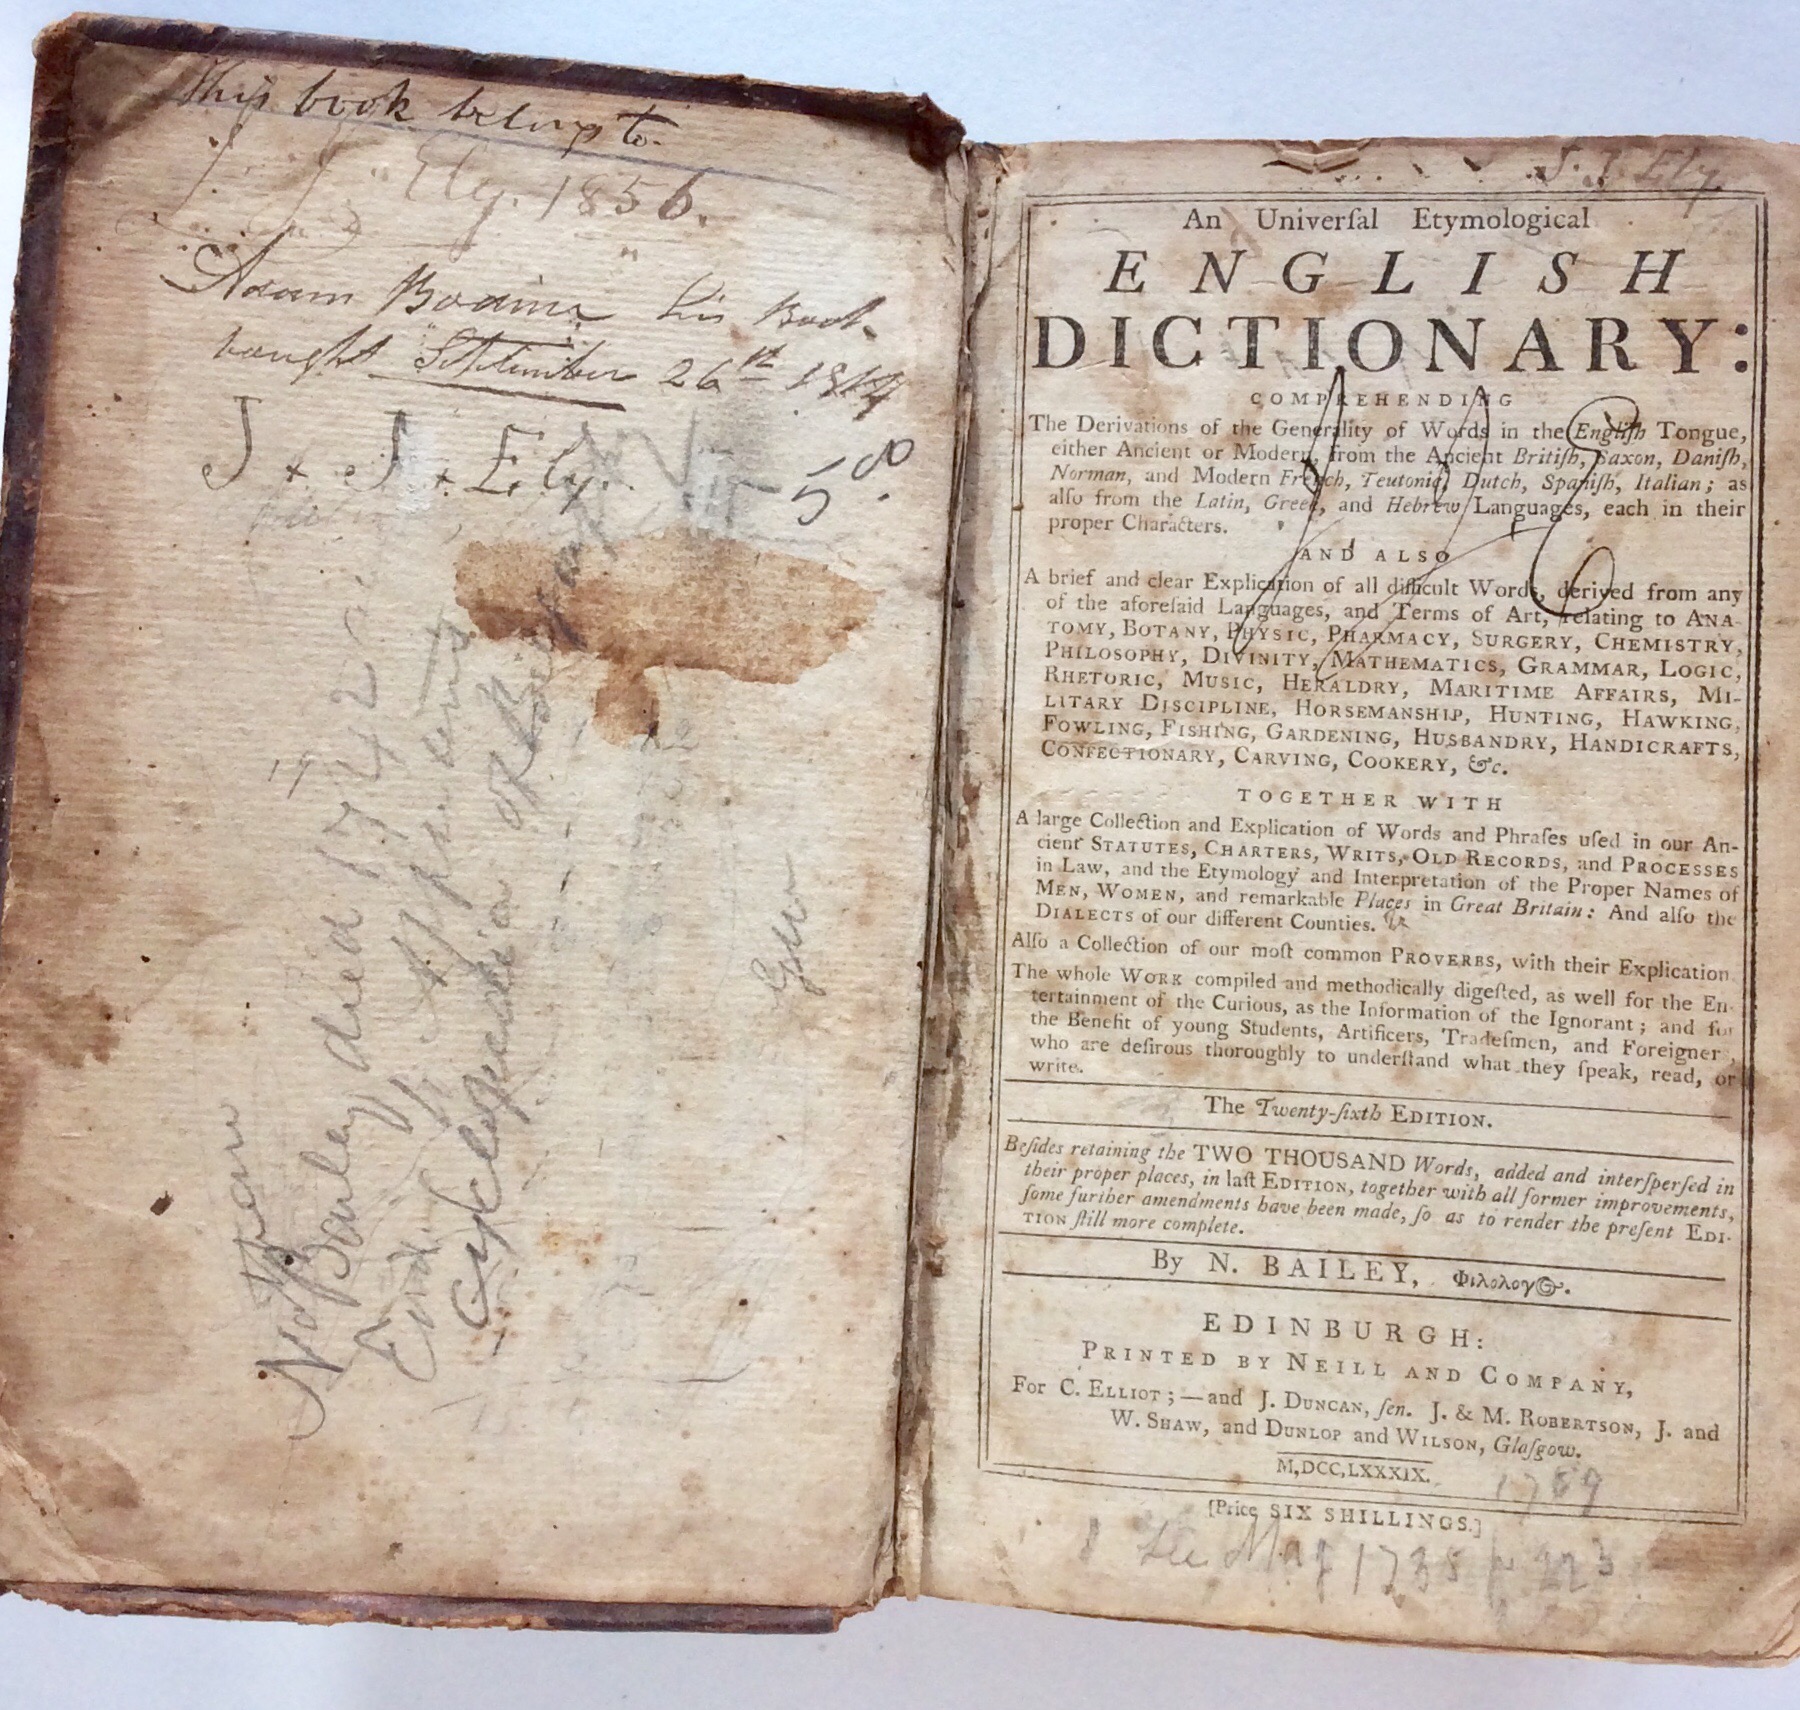 This book belongs to
J. J. Ely. 1856.
Adam Bodine his Book
bought September 26th 1814
J. J. Ely. 58.
Nathan Bailey died 1742
Gen
J. J. Ely.
An Univerſal Etymological
ENGLISH
DICTIONARY:
COMPREHENDING
The Derivations of the Generality of Words in the Engliſh Tongue,
either Ancient or Modern, from the Ancient Britiſh, Saxon, Daniſh,
Norman, and Modern French, Teutonic, Dutch, Spaniſh, Italian; as
alſo from the Latin, Greek, and Hebrew Languages, each in their
proper Characters.
AND ALSO
A brief and clear Explication of all difficult Words, derived from any
of the aforeſaid Languages, and Terms of Art, relating to ANA-
TOMY, BOTANY, PHYSIC, PHARMACY, SURGERY, CHEMISTRY,
PHILOSOPHY, DIVINITY, MATHEMATICS, GRAMMAR, LOGIC,
RHETORIC, MUSIC, HERALDRY, MARITIME AFFAIRS, MI-
LITARY DISCIPLINE, HORSEMANSHIP, HUNTING, HAWKING,
FOWLING, FISHING, GARDENING, HUSBANDRY, HANDICRAFTS,
CONFECTIONARY, CARVING, COOKERY, &c.
TOGETHER WITH
A large Collection and Explication of Words and Phraſes uſed in our An-
cient STATUTES, CHARTERS, WRITS, OLD RECORDS, and PROCESSES
in Law, and the Etymology and Interpretation of the Proper Names of
MEN, WOMEN, and remarkable Places in Great Britain: And alſo the
DIALECTS of our different Counties.
Alſo a Collection of our moſt common PROVERBS, with their Explication
The whole WORK compiled and methodically digeſted, as well for the En-
tertainment of the Curious, as the Information of the Ignorant; and for
the Benefit of young Students, Artificers, Tradeſmen, and Foreigner,
who are deſirous thoroughly to underſtand what they ſpeak, read, or
write.
The Twenty-ſixth EDITION.
Beſides retaining the TWO THOUSAND Words, added and interſperſed in
their proper places, in laſt EDITION, together with all former improvements,
ſome further amendments have been made, ſo as to render the preſent EDI-
TION ſtill more complete.
By N. BAILEY, Φιλολογ.
EDINBURGH:
PRINTED BY NEILL AND COMPANY,
For C. ELLIOT;—and J. DUNCAN, ſen. J. & M. ROBERTSON, J. and
W. SHAW, and DUNLOP and WILSON, Glaſgow.
M,DCC,LXXXIX.
1789
[Price SIX SHILLINGS.]
See Mag 1735 p 223